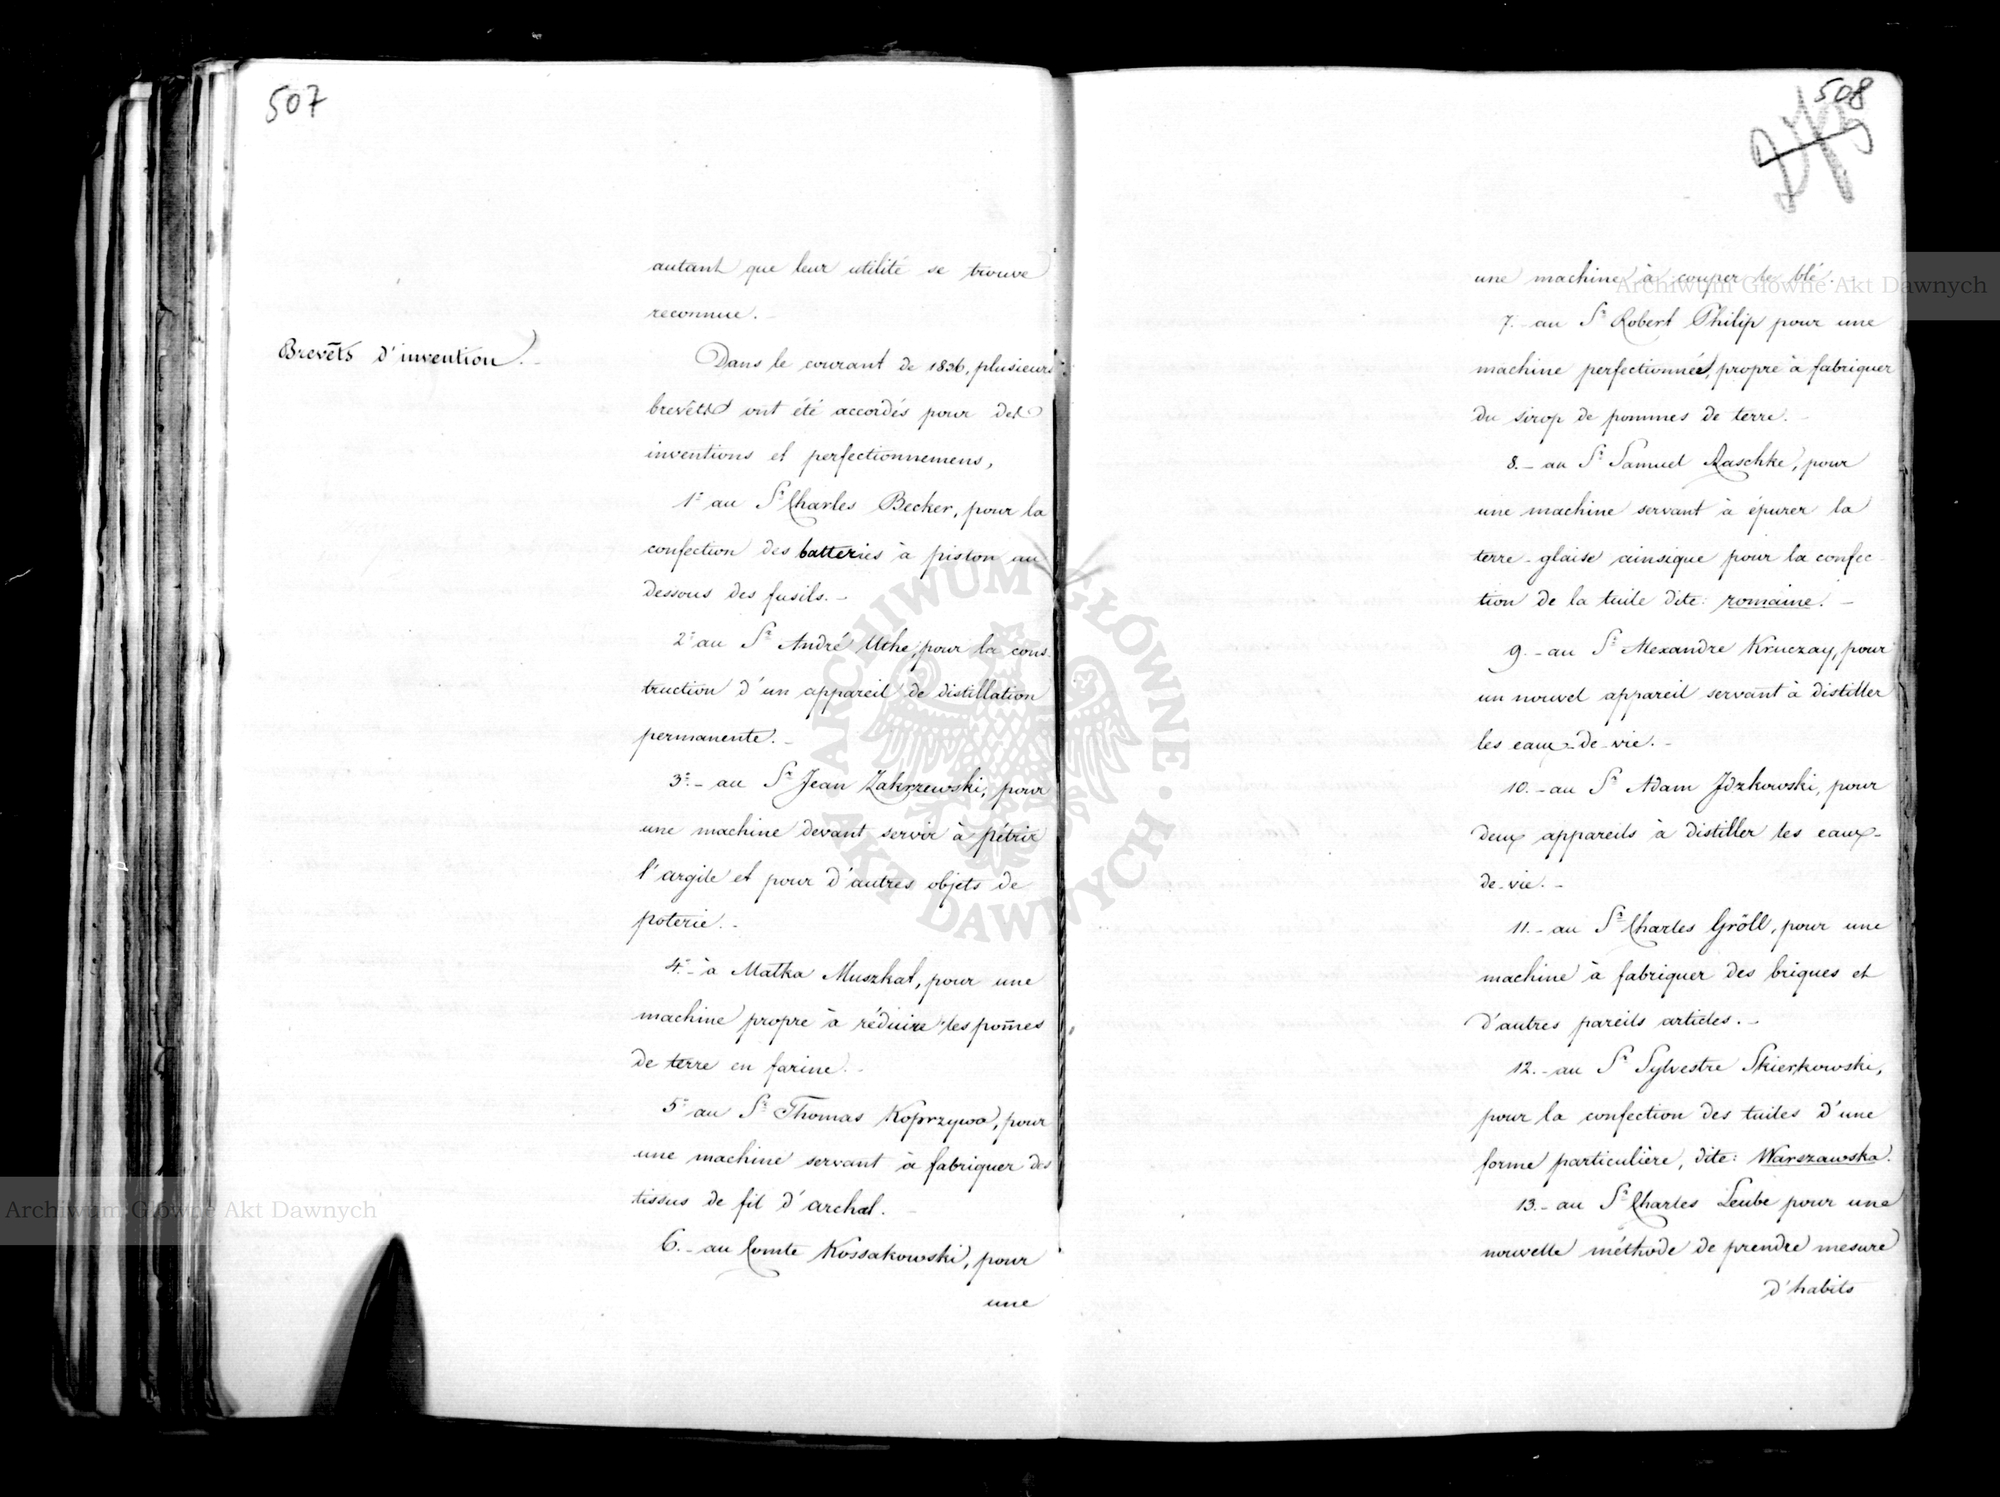 507
autant que leur utilité se trouve
reconnue. –
Brevêts d'invention. –
Dans le courant de 1836, plusieurs
brevêts ont été accordés pour des
inventions et perfectionnemens,
1º au Sr Charles Becker, pour la
confection des batteries à piston au
dessous des fusils. –
2º au Sr André Uthe, pour la cons-
truction d'un appareil de distillation
permanente. –
3º – au Sr Jean Zakrzewski, pour
une machine devant servir à pétrir
l'argile et pour d'autres objets de
poterie. –
4º – à Matka Muszkat, pour une
machine propre à réduire les pom̄es
de terre en farine. –
5º au Sr Thomas Koprzywa, pour
une machine servant à fabriquer des
tissus de fil d'archal. –
6. – au Comte Kossakowski, pour
une
508
une machine à couper le blé.
7. – au Sr Robert Philip pour une
machine perfectionnée, propre à fabriquer
du sirop de pommes de terre. –
8. – au Sr Samuel Raschke, pour
une machine servant à épurer la
terre-glaise ainsique pour la confec-
tion de la tuile dite: romaine. –
9. – au Sr Alexandre Kruczay, pour
un nouvel appareil servant à distiller
les eaux-de-vie. –
10. – au Sr Adam Jdzkowski, pour
deux appareils à distiller les eaux-
de-vie. –
11. – au Sr Charles Gröll, pour une
machine à fabriquer des briques et
d'autres pareils articles. –
12. – au Sr Sylvestre Skierkowski,
pour la confection des tuiles d'une
forme particulière, dite: Warszawska.
13. – au Sr Charles Leube pour une
nouvelle méthode de prendre mesure
d'habits
Archiwum Główne Akt Dawnych
Archiwum Główne Akt Dawnych
ARCHIWUM GŁÓWNE AKT DAWNYCH